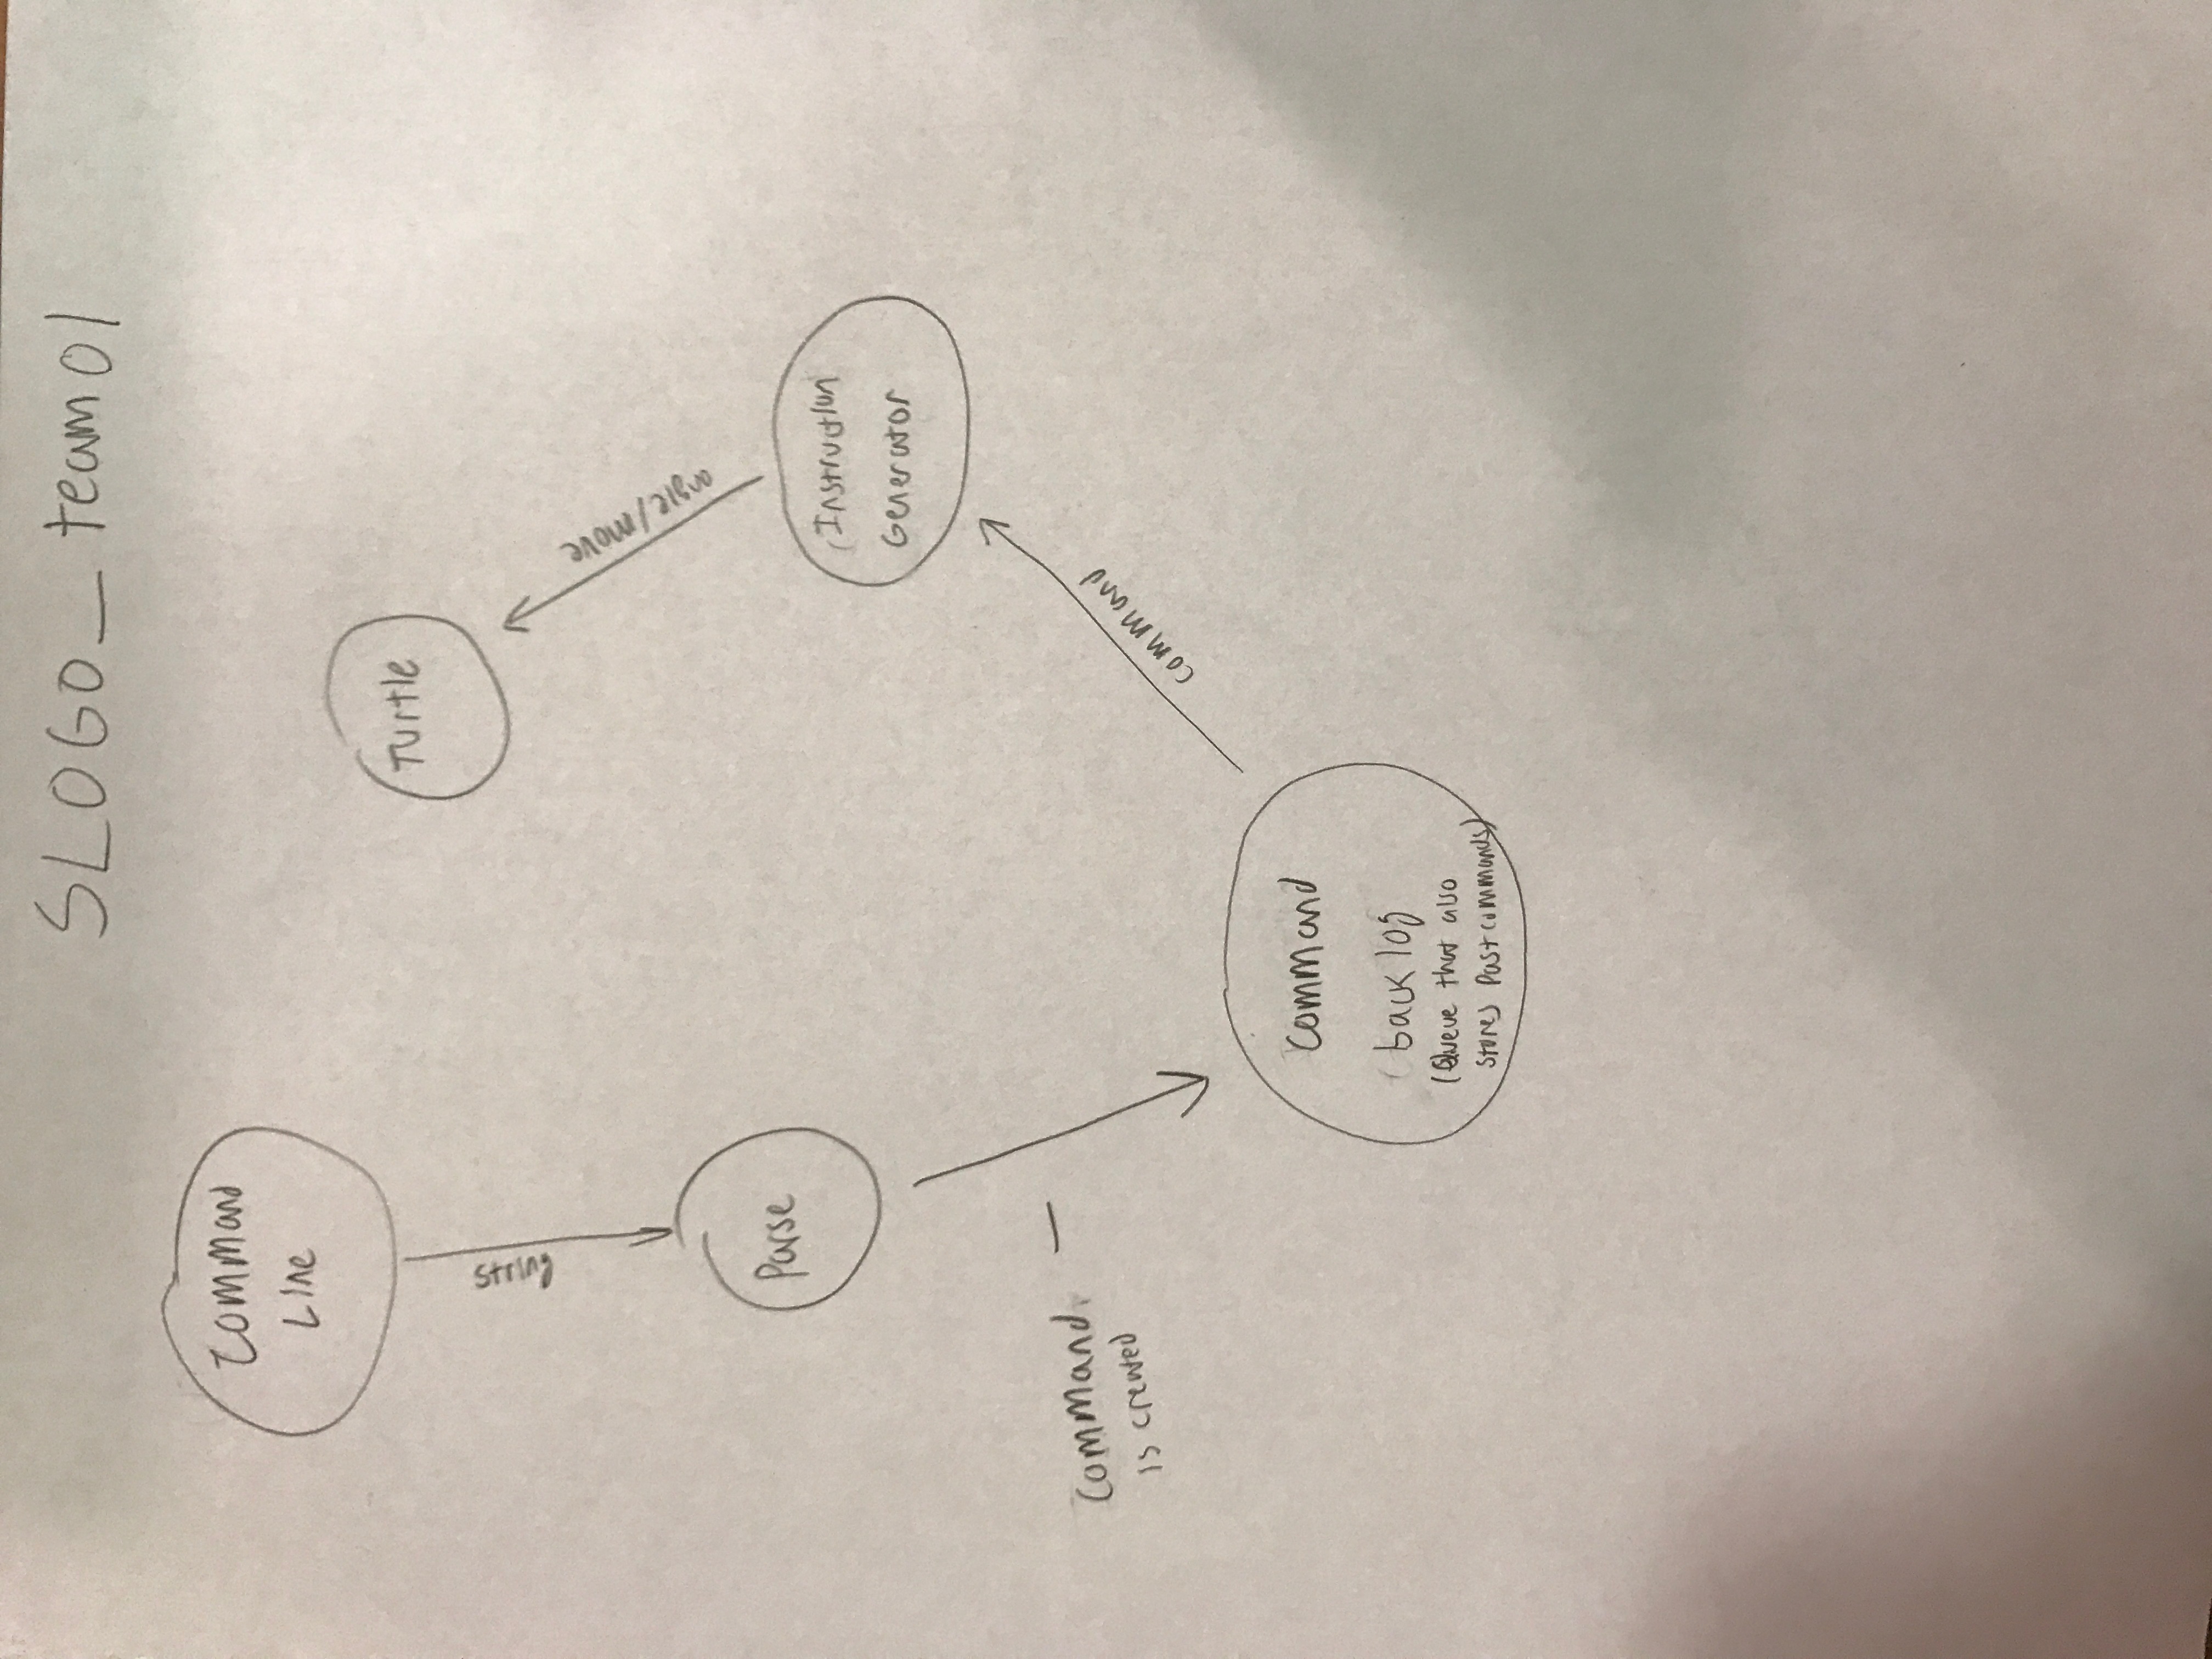 SLOGO_team01
Command
Line
string
Parse
Command
is created
Command
backlog
(Queue that also
stores past commands)
command
Instruction
Generator
angle/move
Turtle